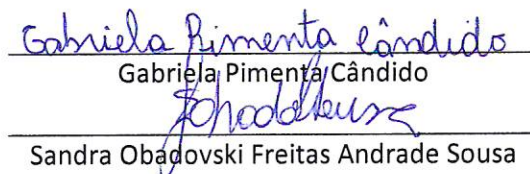 Gabriela Pimenta Cândido
Gabriela Pimenta Cândido
Sandra Obadovski Freitas Andrade Sousa